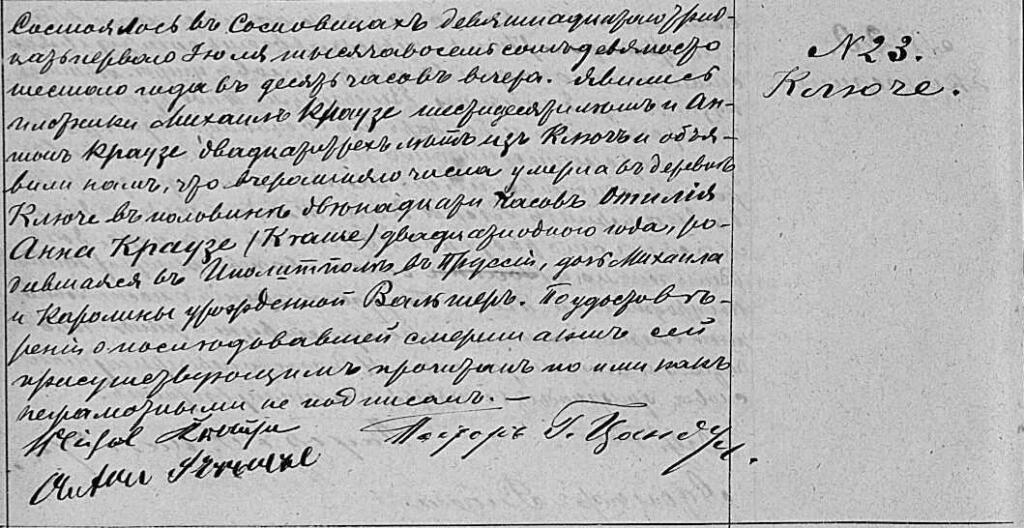 Состоялось въ Сосновицахъ девятнадцатаго /трид-
цать перваго Іюля тысяча восемь сотъ девяносто
шестого года въ десять часовъ вечера. Явились
плотники Михаилъ Краузе шестидесяти лѣтъ и Ан-
тонъ Краузе двадцати трехъ лѣтъ изъ Ключъ и объя-
вили намъ, что вчерашняго числа умерла въ деревнѣ
Ключе въ половинѣ двѣнадцати часовъ Отилія
Анна Краузе (Krause) двадцати одного года, ро-
дившаяся въ въ Пруссіи, дочь Михаила
и Каролины урожденной Вальтеръ. По удостовѣ-
реніи о послѣдовавшей смерти актъ сей
присутствующимъ прочитанъ но ими какъ
неграмотными не подписанъ. —
Пасторъ Г. Цандеръ.
Anton Krause
N 23.
Ключе.